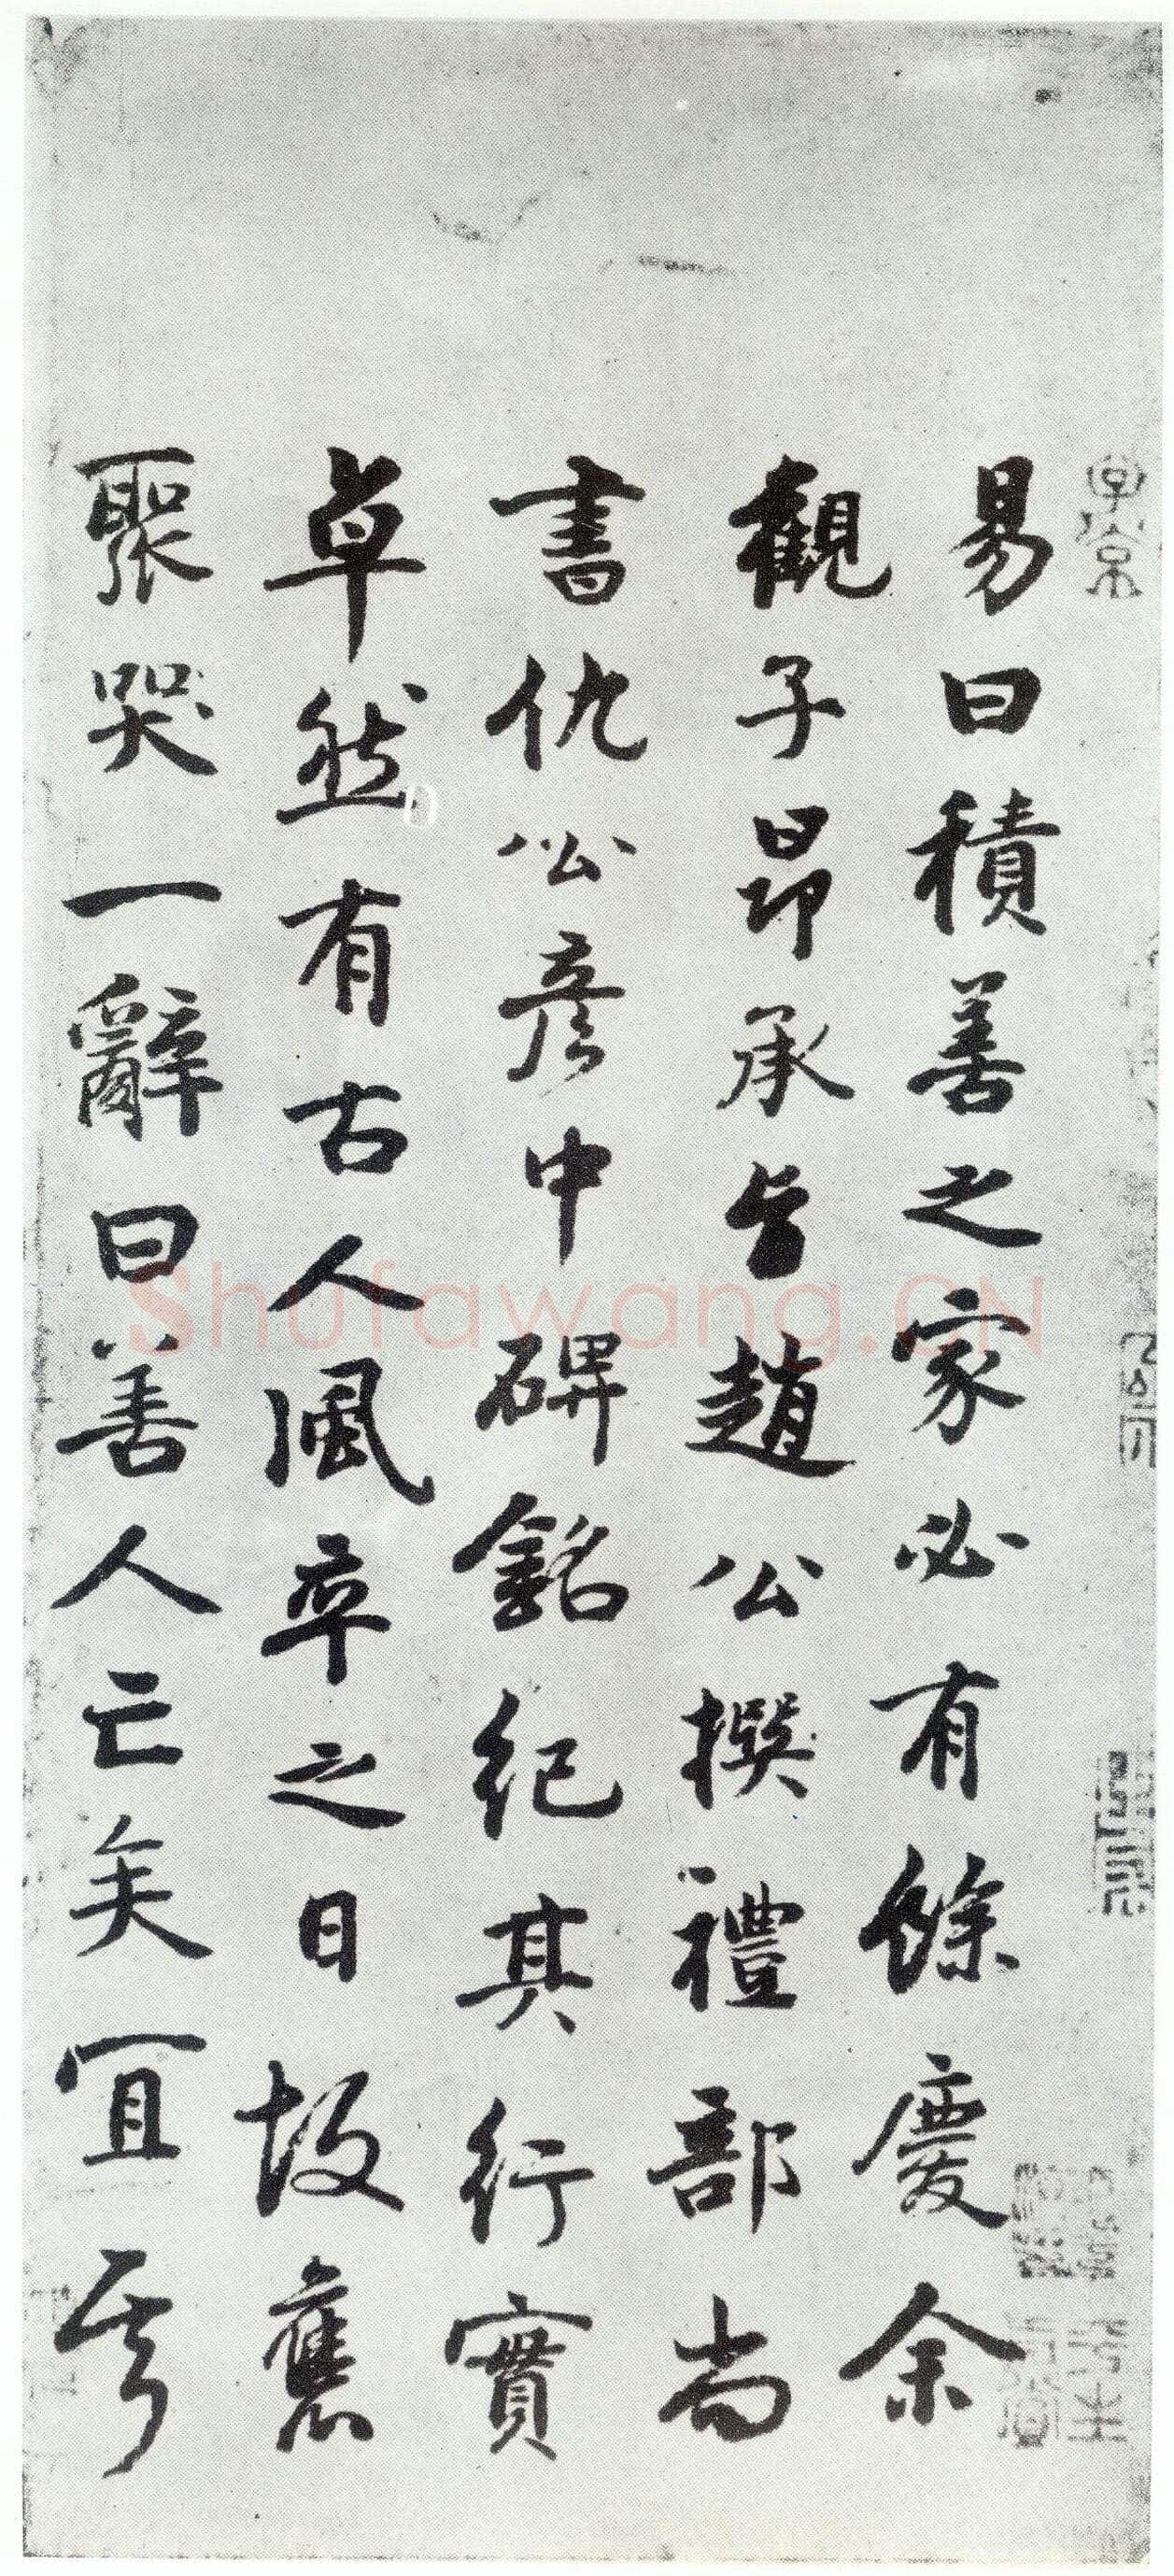 易曰積善之家必有餘慶余
觀子昂承旨趙公撰禮部尚
書仇公彥中碑銘紀其行實
卓然有古人風卒之日故舊
聚哭一辭曰善人亡矣宜乎
Shufawang.CN